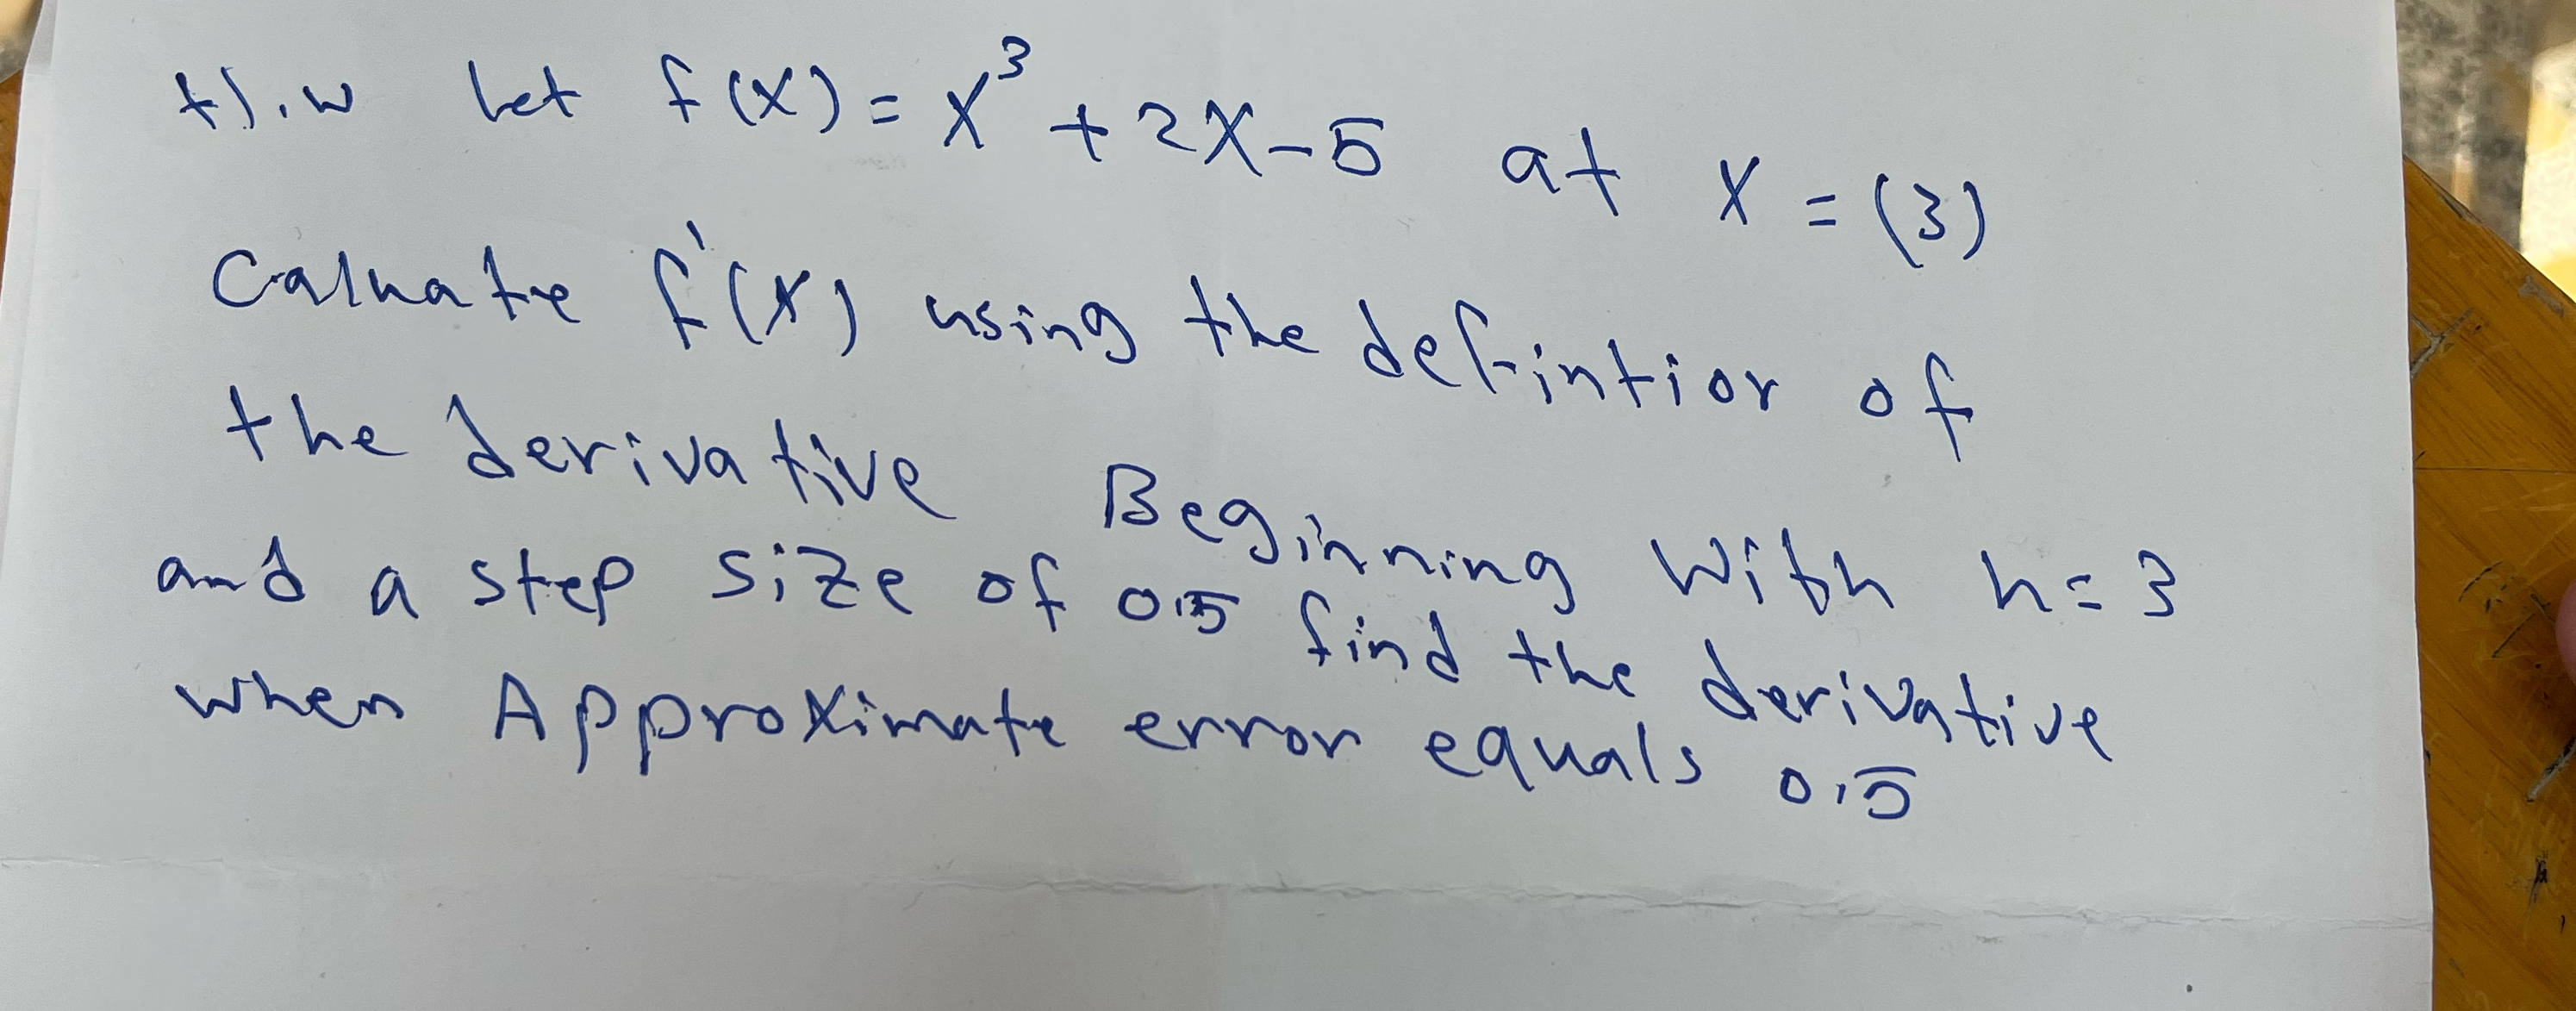 H.w Let f(x) = x³ + 2x - 5 at x = (3)
Caluate f'(x) using the defintior of
the derivative Beginning With h = 3
and a step size of 0.5 find the derivative
when Approximate error equals 0.5